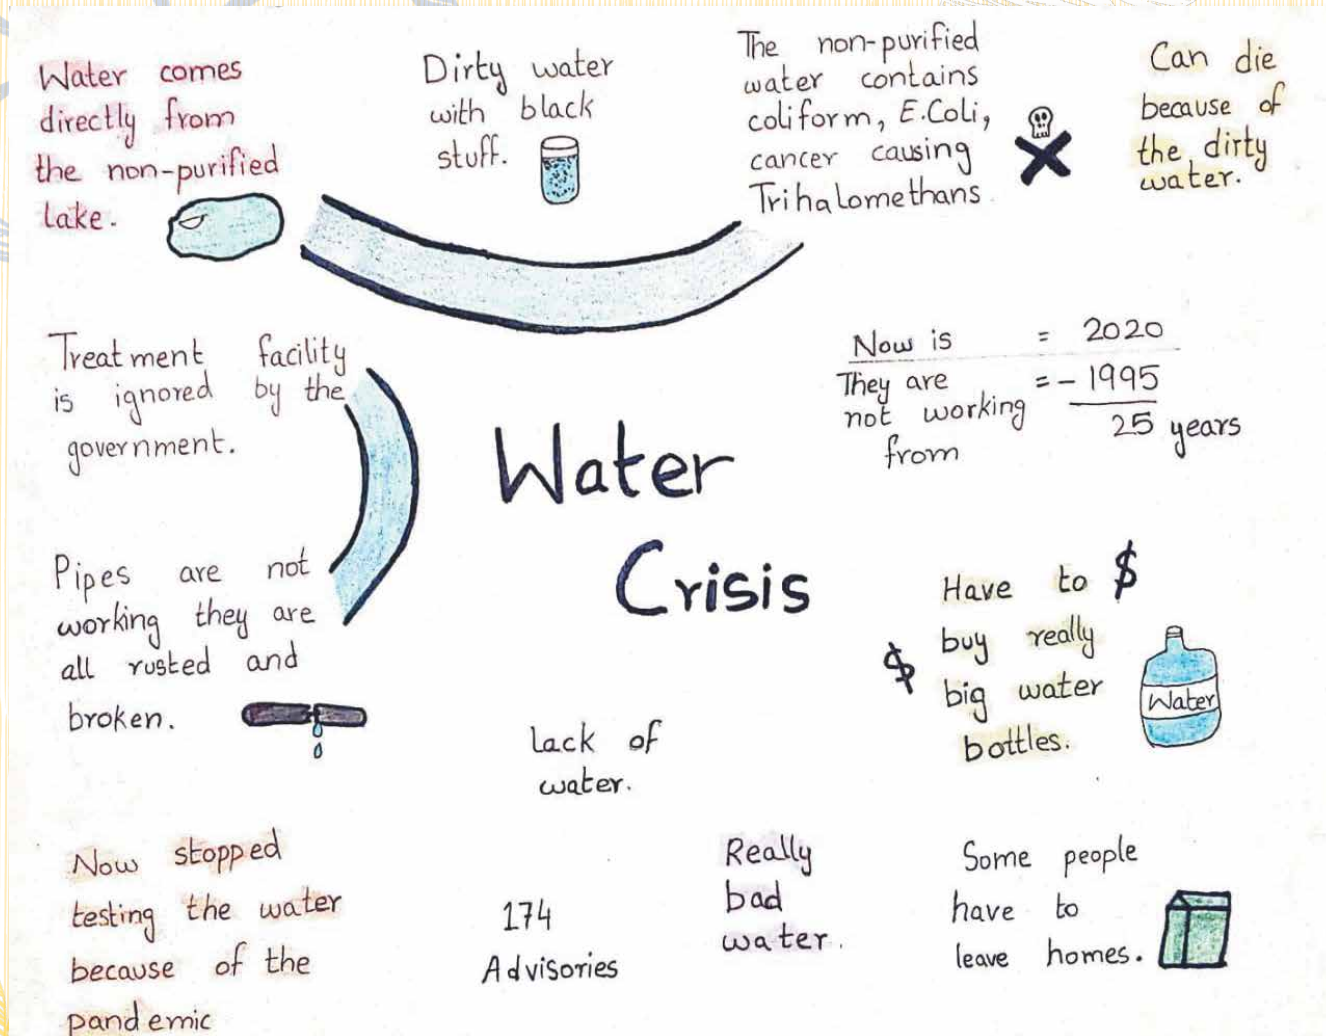 Water comes
directly from
the non-purified
lake.
Dirty water
with black
stuff.
The non-purified
water contains
coliform, E.Coli,
cancer causing
Trihalomethans.
Can die
because of
the dirty
water.
Treatment facility
is ignored by the
government.
Now is = 2020
They are = - 1995
not working 25 years
from
Water
Crisis
Pipes are not
working they are
all rusted and
broken.
lack of
water.
Have to $
$ buy really
big water
bottles.
Water
Now stopped
testing the water
because of the
pandemic
174
Advisories
Really
bad
water.
Some people
have to
leave homes.